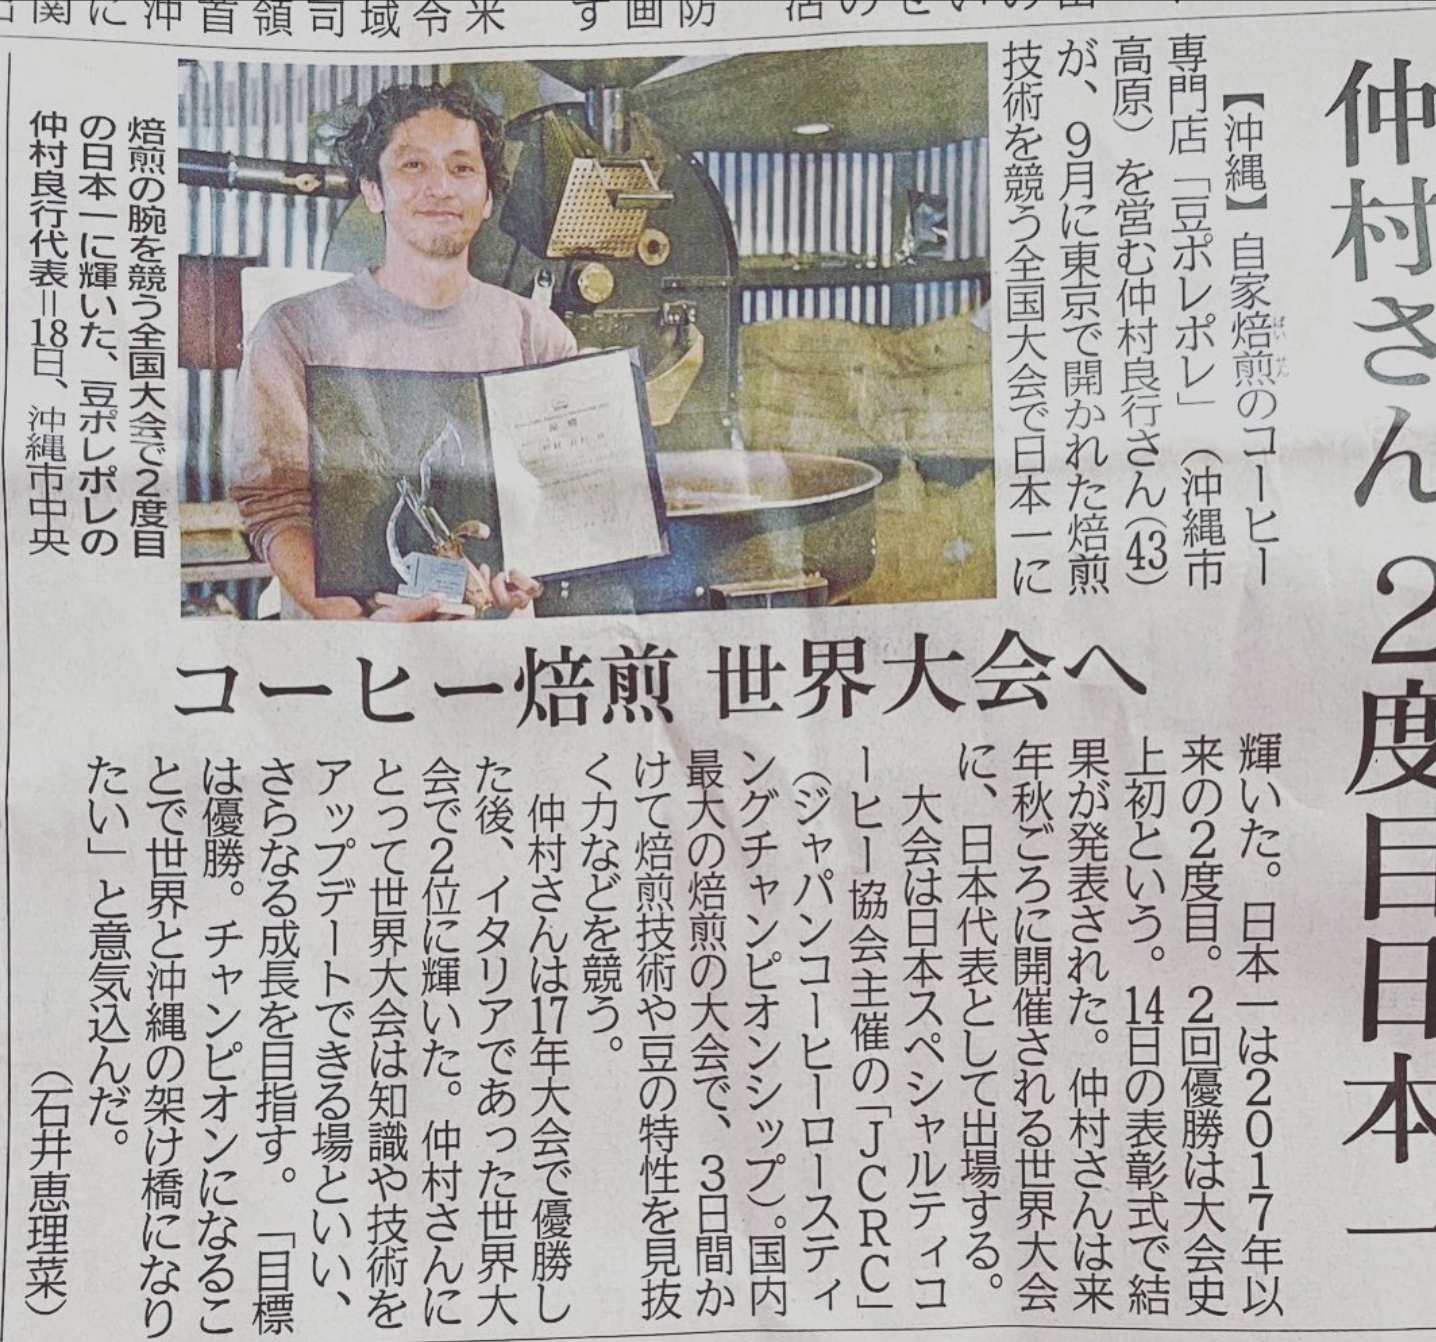 仲村さん 2度目日本一
コーヒー焙煎 世界大会へ
【沖縄】自家焙煎のコーヒー
ばい せん
専門店「豆ポレポレ」(沖縄市
高原)を営む仲村良行さん(43)
が、9月に東京で開かれた焙煎
技術を競う全国大会で日本一に
輝いた。日本一は2017年以
来の2度目。2回優勝は大会史
上初という。14日の表彰式で結
果が発表された。仲村さんは来
年秋ごろに開催される世界大会
に、日本代表として出場する。
大会は日本スペシャルティコ
ーヒー協会主催の「JCRC」
(ジャパンコーヒーロースティ
ングチャンピオンシップ)。国内
最大の焙煎の大会で、3日間か
けて焙煎技術や豆の特性を見抜
く力などを競う。
仲村さんは17年大会で優勝し
た後、イタリアであった世界大
会で2位に輝いた。仲村さんに
とって世界大会は知識や技術を
アップデートできる場といい、
さらなる成長を目指す。「目標
は優勝。チャンピオンになるこ
とで世界と沖縄の架け橋になり
たい」と意気込んだ。
(石井恵理菜)
焙煎の腕を競う全国大会で2度目
の日本一に輝いた、豆ポレポレの
仲村良行代表=18日、沖縄市中央
優勝